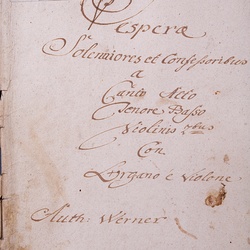 Vesperæ
Solenniores et Confessoribus
a
Canto Alto
Tenore Basso
Violinis obus
Con
Organo e Violone
Auth: Werner